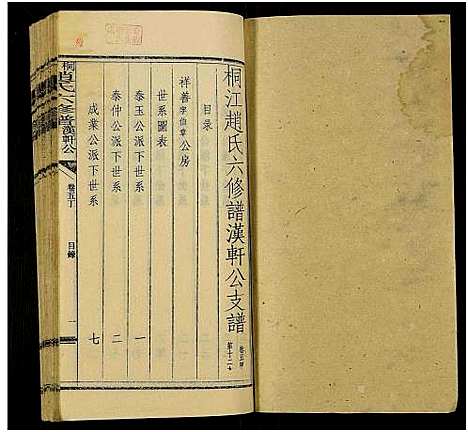 桐江趙氏六修譜漢軒公支譜
目录
祥善字伯章公房
世系圖表
泰玉公派下世系 一
泰仲公派下世系 二
成業公派下世系 七
桐江趙氏六修譜漢軒公
卷五下 目錄 一